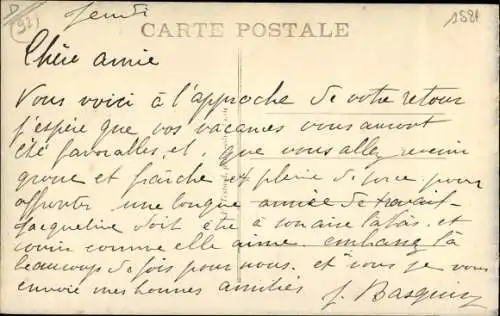 jeudi
(92)
1581
CARTE POSTALE
Chère amie
Vous voici à l'approche de votre retour
j'espère que vos vacances vous auront
été favorables, et que vous allez revenir
grosse et fraîche et pleine de force pour
affronter une longue année de travail.
Jacqueline doit être à son aise là bas et
courir comme elle aime. embrassez là
beaucoup de fois pour nous. et vous je vous
envoie mes bonnes amitiés
J. Basquin